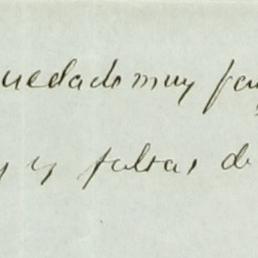 uedado muy
y y faltas de